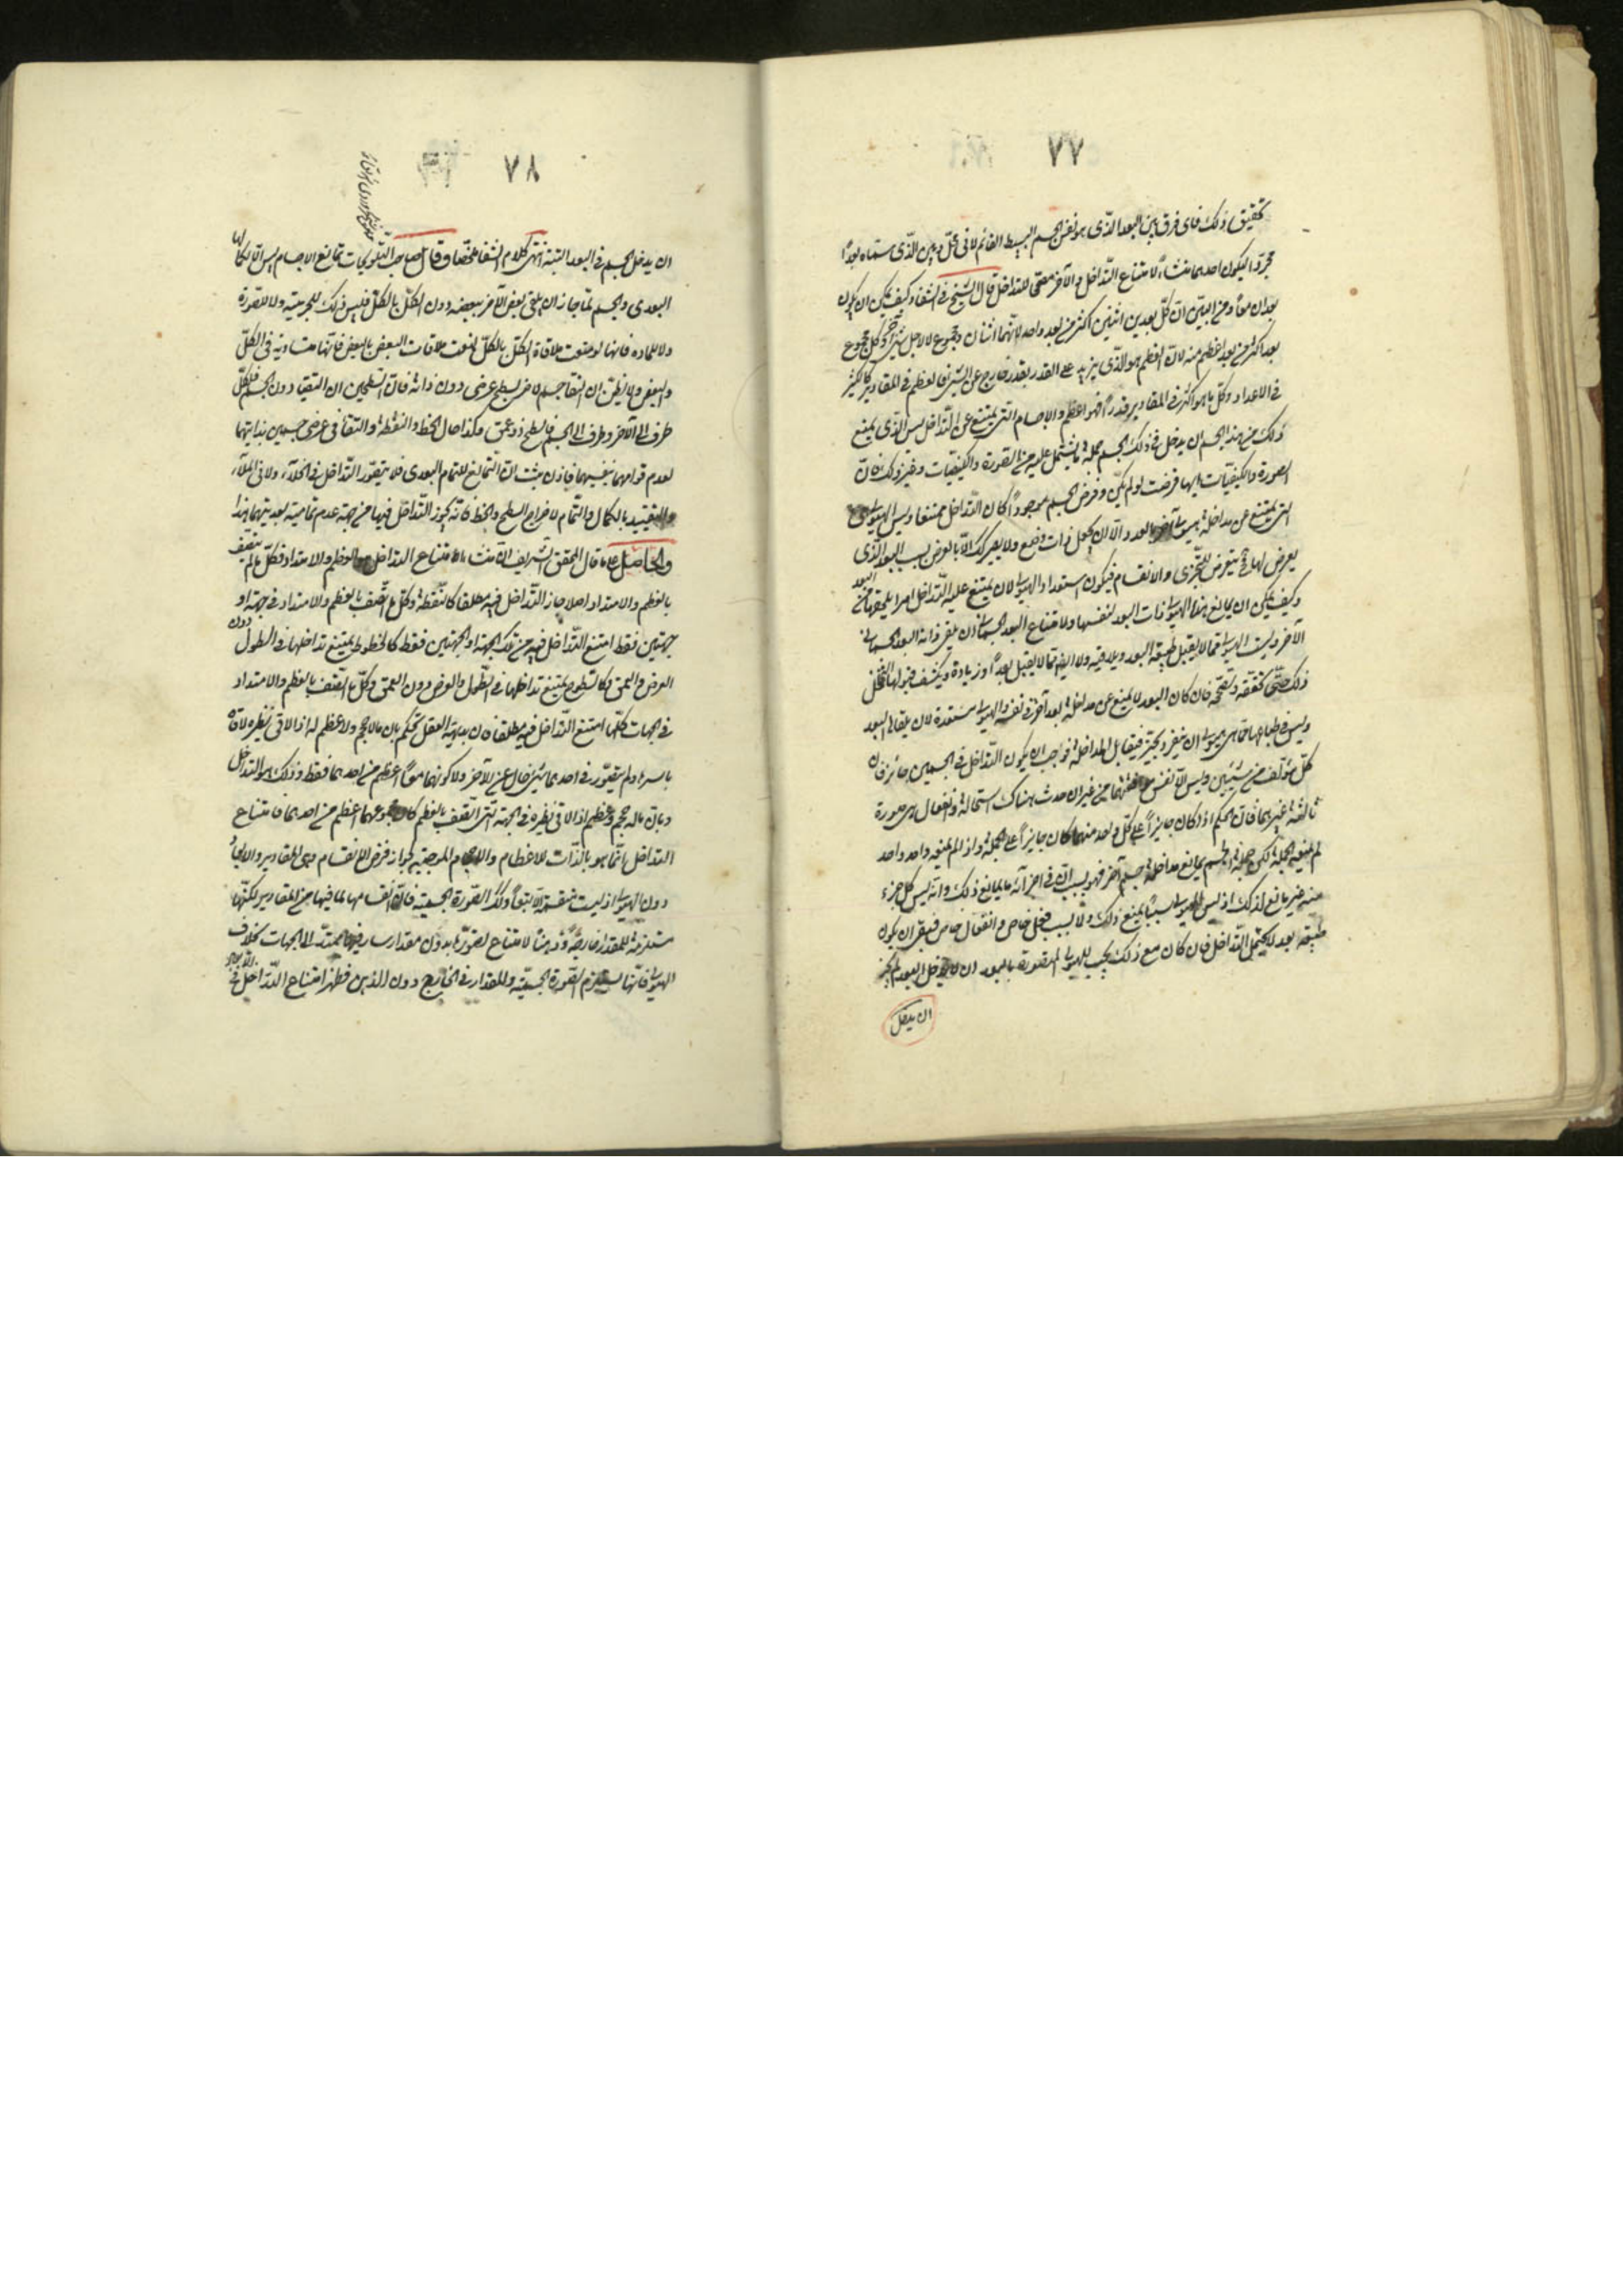 ٧٧
تحقيق ذلك فاى فرق بين البعد الذى هو نفس الجسم البسيط القائم لا فى محل وبين الذى سمّاه بعدًا
مجردًا ليكون احدهما منشاءً لامتناع التداخل والآخر مصححا للتداخل قال الشيخ فى الشفا وكيف يمكن ان يكون
بعدان معًا ومن البيّن ان كل بعدين اثنين اكثر من بعد واحد لانهما اثنان ومجموع لا لاجل شئ آخر وكل مجموع
بعد اكثر من بعد اعظم منه لان العظم هو الذى يزيد على القدر بقدر خارج عن الشئ فالعظم فى المقادير كالكثير
فى الاعداد وكل ما هو اكثر فى المقادير قدرًا فهو اعظم والاجسام التى يمتنع عن التداخل ليس الذى يمنع
ذلك من هذا الجسم ان يدخل فى ذلك الجسم جملة ما يشتمل عليه من الصورة والكيفيّات وغير ذلك فان
الصورة والكيفيّات ايها فرضت لو لم يكن وفرض الجسم موجودًا كان التداخل ممتنعا وليس الهيولى هى
التى يمتنع عن مداخلة هيولى اخرى بالعدد الا ان يجعل ذات وضع ولا يصير كذلك الا بالعرض بسبب البعد الذى
يعرض لها فح يتعرض للتجزى والانقسام فيكون استعداد الهيولى لان يمتنع عليه التداخل امرا يلحقها من البعد
وكيف يمكن ان يمانع هذا الهيولى ذات البعد لنفسها ولامتناع البعد الجسمانى ان يلقى ذاته البعد الجسمانى
الآخر وليست الهيولى مما لا يقبل طبيعة البعد ويلاقيه ولا ايضا مما لا يقبل بعدًا او زيادة ويكشف قبولها التخلخل
ذلك حتى تحققه وتصححه فان كان البعد لا يمنع عن مداخلة بعد آخر فى نفسه والهيولى مستعدة لان يلقاها البعد
وليس فى طباعها بما هى هيولى ان ينفرد بحيز فيقابل المداخلة فواجب ان يكون التداخل فى الجسمين جائزا فان
كل مؤلف من شيئين وليس الا نفس اجتماعهما من غير ان حدث هناك استحالة وانفعال هى صورة
ثالثة غيرهما فان الحكم اذا كان جايزًا على كل واحد منهما كان جايزًا على الجملة واذا لم يمنعه واحد واحد
لم يمنعه الجملة لكن جملة الجسم يمانع مداخلة جسم آخر فهو بسبب ان فى اجزائه ما يمانع ذلك وانه ليس كل جزء
منه غير مانع لذلك اذ ليس الهيولى سببًا يمنع ذلك ولا بسبب فعل خاص وانفعال خاص فبقى ان يكون
طبيعة بعد لا يحتمل التداخل فان كان مع ذلك يجب للهيولى المتصورة بالبعد ان لا يداخل البعد لم يجز
ان يدخل
٧٨
ان يدخل الجسم فى البعد البتة انتهى كلام الشفا ملخصا وقال صاحب التلويحات تمانع الاجسام ليس الا لكمالها
البعدى والجسم لما جاز ان يلقى بعض الآخر ببعضه دون الكل بالكل فليس ذلك للجرمية ولا للصورة
ولا للمادة فانها لو منعت ملاقاة الكل بالكل لمنعت ملاقات البعض بالبعض فانها متساوية فى الكل
والبعض ولا يظن ان التقا جسم لآخر بسطح عرضى دون ذاته فان السطحين ان التقيا دون الجسم فلكل
طرف الى الآخر وطرف الى الجسم فالسطح ذو عمق وكذا حال الخط والنقطة والتقا فى عرضى جسمين بذاتيهما
لعدم قوامهما بنفسيهما فاذن ثبت ان التمانع للتمام البعدى فلا يتصور التداخل فى الخلآء ولا فى الملآء
والتقييد بالكمال والتمام لاخراج السطح والخط فانه يجوز التداخل فيها من جهة عدم تمامية بعديتهما هذا
والحاصل على ما قال المحقق الشريف ان منشاء الامتناع التداخل هو العظم والامتداد فكل ما لم يتصف
بالعظم والامتداد اصلا جاز التداخل فيه مطلقا كالنقطة وكل ما اتصف بالعظم والامتداد فى جهة او
جهتين فقط امتنع التداخل فيه من تلك الجهة او الجهتين فقط كالخطوط يمتنع تداخلها فى الطول دون
العرض والعمق وكالسطوح يمتنع تداخلها فى الطول والعرض دون العمق وكل ما اتصف بالعظم والامتداد
فى الجهات كلها امتنع التداخل فيه مطلقا فان بديهة العقل تحكم بان ما لا حجم ولا عظم له اذا لاقى نظيره لاقاه
باسره ولم يتصور فى احدهما شئ خال عن الآخر ولا كونهما معًا اعظم من احدهما فقط وذلك هو التداخل
وبان ما له حجم وعظم اذا لاقى نظيره فى الجهة التى اتصف بالعظم كان مجموعهما اعظم من احدهما فامتناع
التداخل انما هو بالذات للاعظام والاحجام الموجبة لجواز فرض الانقسام وهى المقادير والابعاد
دون الهيولى اذ ليست منقسمة الا تبعًا وكذا الصورة الجسمية فان انقسامها لما فيها من المقادير لكنها
مستلزمة للمقدار خارجًا وذهنًا لامتناع تصورها بدون مقدار سار فيها ممتدّ الى الجهات بخلاف
الهيولى فانها تستلزم الصورة الجسمية والمقدار فى الخارج دون الذهن فظهر امتناع التداخل فى